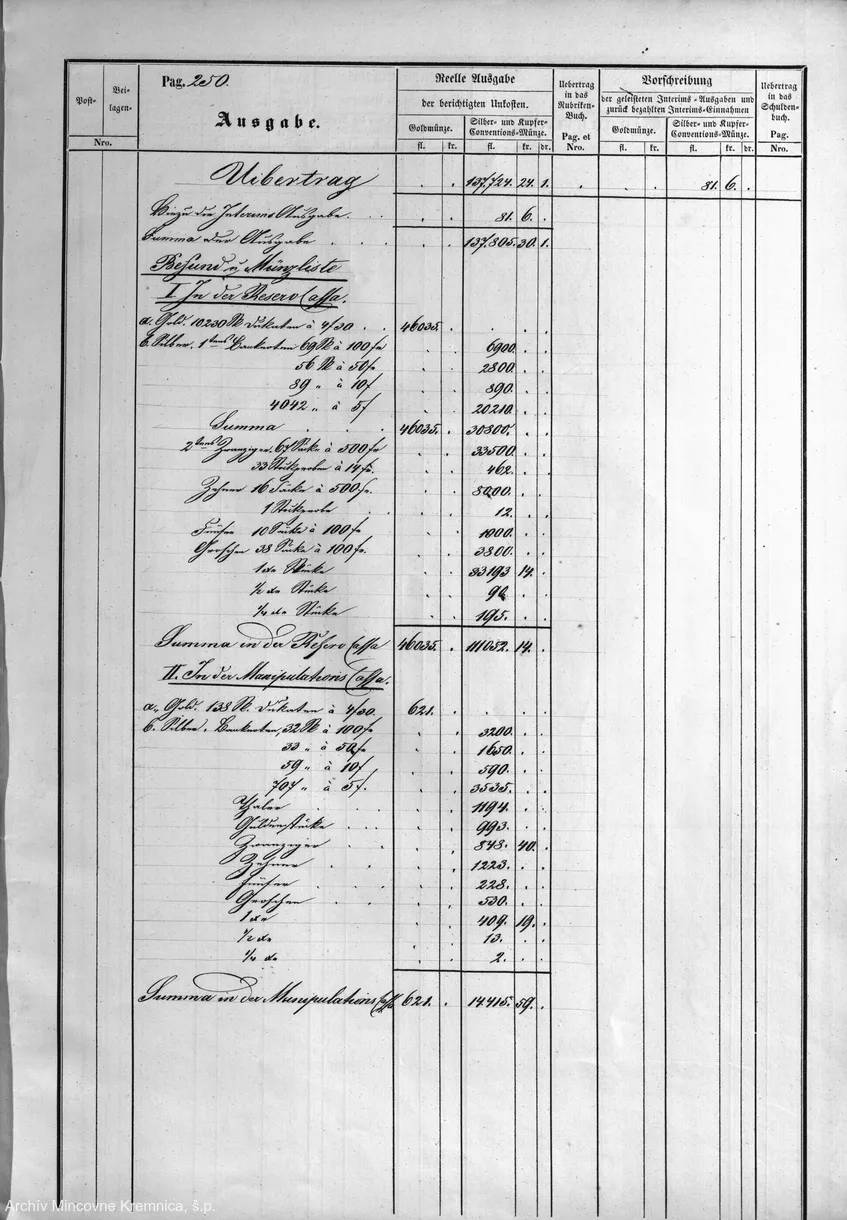 Post-
Nro.
Bei-
lagen-
Pag. 250.
Ausgabe.
Reelle Ausgabe
der berichtigten Unkosten.
Goldmünze.
Silber- und Kupfer-
Conventions-Münze.
fl. kr. fl. kr. dr.
Uebertrag
in das
Rubriken-
Buch.
Pag. et
Nro.
Vorschreibung
der geleisteten Interims-Ausgaben und
zurück bezahlten Interims-Einnahmen
Goldmünze.
Silber- und Kupfer-
Conventions-Münze.
fl. kr. fl. kr. dr.
Uebertrag
in das
Schulden-
buch.
Pag.
Nro.
Uibertrag . . 137,724. 24. 1. . . . 81. 6. .
Hinzu die Interims Ausgabe . . . . 81. 6. .
Summa der Ausgabe . . . . . 137.805. 30. 1.
Befund u. Münzliste
I In der Reserv Cassa.
a. Gold. 10230 St Dukaten à 4/30 . . 46035. . . . .
b. Silber. 1tens Banknoten 69 St à 100 f . . 6900. . .
56 St à 50 f . . 2800. . .
89 " à 10 f . . 890. . .
4042 " à 5 f . . 20210. . .
Summa . . . 46035. . 30800. . .
2tens Zwanziger 67 Säcke à 500 f . . 33500. . .
33 Stockproben à 14 f. . . 462. . .
Zehner 16 Säcke à 500 f. . . 8000. . .
1 Stockprobe . . . 12. . .
Fünfer 10 Säcke à 100 f . . 1000. . .
Groschen 38 Säcke à 100 f. . . 3800. . .
1 dr Stücke . . 33193 14. .
1/2 dr Stücke . . . .
1/4 dr Stücke . . 195. . .
Summa in der Reserv Cassa 46035. . 111052. 14. .
II. In der Manipulations Cassa.
a. Gold. 138 St. Dukaten à 4/30. 621. . . . .
b. Silber. Banknoten, 32 St à 100 f . . 3200. . .
33 " à 50 f . . 1650. . .
59 " à 10 f . . 590. . .
707 " à 5 f. . . 3535. . .
Thaler . . . 1194. . .
Guldenstücke . . . . 993. . .
Zwanziger . . . 848. 40. .
Zehner . . . 1223. . .
Fünfer . . . 228. . .
Groschen . . . 530. . .
1 dr . . 409. 19. .
1/2 dr . . 13. . .
1/4 dr . . 2. . .
Summa in der Manipulations Cassa 621. . 14.415. 59. .
Archív Mincovne Kremnica, š.p.